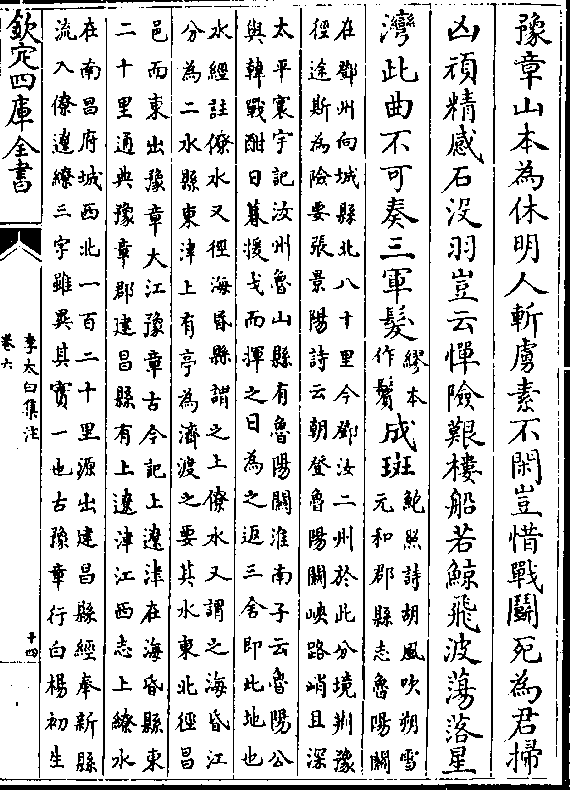 豫章山本為休明人斬虜素不閑豈惜戰鬬死為君掃
凶頑精感石没羽豈云憚險艱樓船若鯨飛波蕩落星
灣此曲不可奏三軍髮
繆本
作鬢
成斑
鮑照詩胡風吹朔雪
元和郡縣志魯陽關
在鄧州向城縣北八十里今鄧汝二州於此分境荆豫
徑途斯為險要張景陽詩云朝登魯陽關峽路峭且深
太平寰宇記汝州魯山縣有魯陽關淮南子云魯陽公
與韓戰酣日暮援戈而揮之日為之返三舍即此地也
水經註僚水又徑海昏縣謂之上僚水又謂之海昏江
分為二水縣東津上有亭為濟渡之要其水東北徑昌
邑而東出豫章大江豫章古今記上遼津在海昏縣東
二十里通典豫章郡建昌縣有上遼津江西志上繚水
在南昌府城西北一百二十里源出建昌縣經奉新縣
流入僚遼繚三字雖異其實一也古豫章行白楊初生
欽定四庫全書
李太白集注
卷六
十四